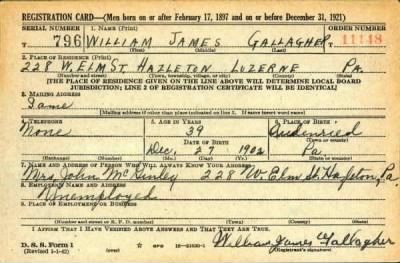 REGISTRATION CARD—(Men born on or after February 17, 1897 and on or before December 31, 1921)
SERIAL NUMBER 1. NAME (Print) ORDER NUMBER
T 796 WILLIAM JAMES GALLAGHER T 11148
(First) (Middle) (Last)
2. PLACE OF RESIDENCE (Print)
228 W. ELM ST HAZLETON LUZERNE PA.
(Number and street) (Town, township, village, or city) (County) (State)
[THE PLACE OF RESIDENCE GIVEN ON THE LINE ABOVE WILL DETERMINE LOCAL BOARD
JURISDICTION; LINE 2 OF REGISTRATION CERTIFICATE WILL BE IDENTICAL]
3. MAILING ADDRESS
Same
[Mailing address if other than place indicated on line 2. If same insert word same]
4. TELEPHONE 5. AGE IN YEARS 6. PLACE OF BIRTH
None 39 Audenried
DATE OF BIRTH (Town or county)
Dec. 27 1902 Pa.
(Exchange) (Number) (Mo.) (Day) (Yr.) (State or country)
7. NAME AND ADDRESS OF PERSON WHO WILL ALWAYS KNOW YOUR ADDRESS
Mrs. John McGinley 228 W. Elm St. Hazleton, Pa.
8. EMPLOYER'S NAME AND ADDRESS
Unemployed
9. PLACE OF EMPLOYMENT OR BUSINESS
(Number and street or R. F. D. number) (Town) (County) (State)
I AFFIRM THAT I HAVE VERIFIED ABOVE ANSWERS AND THAT THEY ARE TRUE.
D. S. S. Form 1
(Revised 1-1-42) GPO 16-21630-1 William James Gallagher
(Registrant's signature)